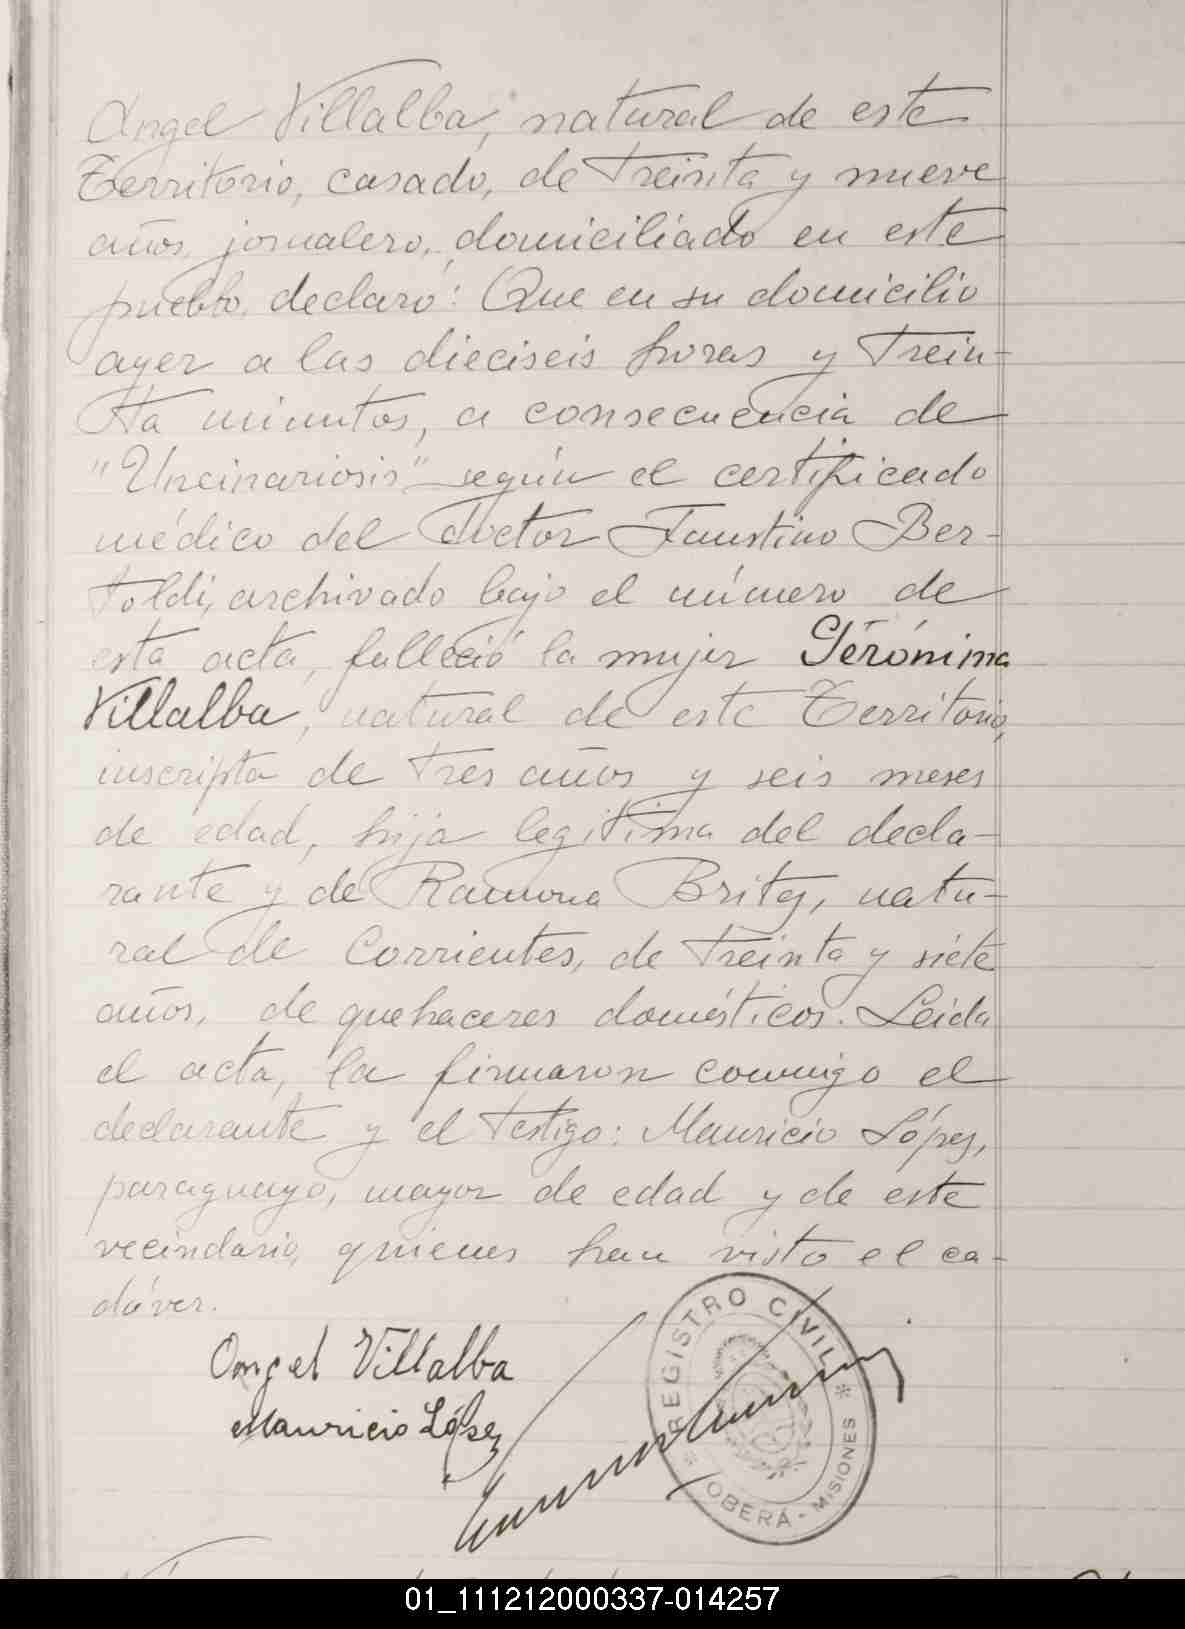 Angel Villalba, natural de este
Territorio, casado, de treinta y nueve
años, jornalero, domiciliado en este
pueblo, declaró: Que en su domicilio
ayer a las dieciseis horas y trein-
ta minutos, a consecuencia de
"Uncinariosis" según el certificado
médico del doctor Faustino Ber-
toldi, archivado bajo el número de
esta acta, falleció la mujer Gerónima
Villalba, natural de este Territorio,
inscripta de tres años y seis meses
de edad, hija legitima del decla-
rante y de Ramona Britez, natu-
ral de Corrientes, de treinta y siete
años, de quehaceres domésticos. Leida
el acta, la firmaron conmigo el
declarante y el testigo: Mauricio López,
paraguayo, mayor de edad y de este
vecindario, quienes han visto el ca-
dáver.
Angel Villalba
Mauricio López
REGISTRO CIVIL
OBERÁ - MISIONES
01_111212000337-014257